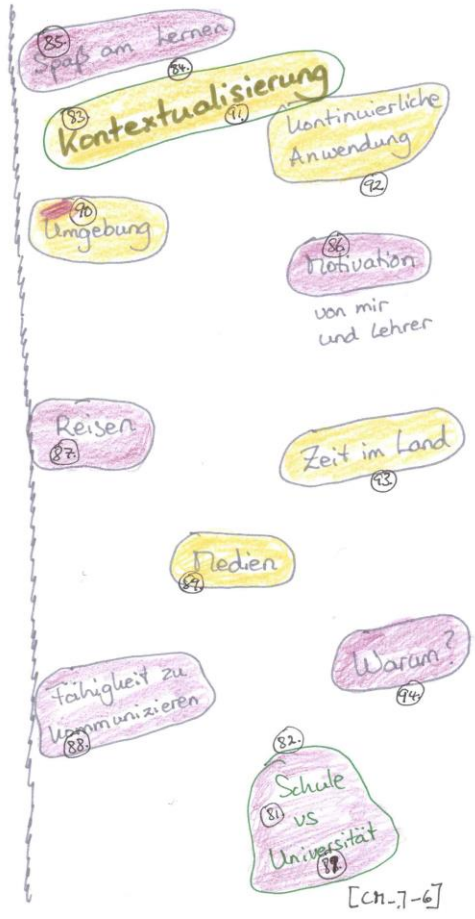 85.
Spaß am Lernen
84.
83.
Kontextualisierung
91.
Kontinuierliche
Anwendung
92.
90.
Umgebung
86.
Motivation
von mir
und Lehrer
Reisen
87.
Zeit im Land
93.
Medien
89.
Warum?
94.
Fähigkeit zu
kommunizieren
88.
82.
Schule
81.
vs
Universität
[CM-7-6]